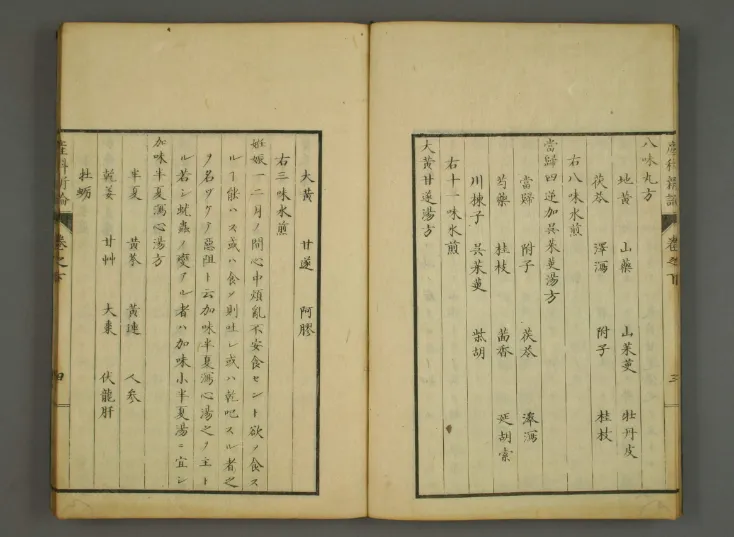 八味丸方
地黄 山藥 山茱萸 牡丹皮
茯苓 澤瀉 附子 桂枝
右八味水煎
當歸四逆加呉茱萸湯方
當歸 附子 茯苓 澤瀉
芍藥 桂枝 茴香 延胡索
川楝子 呉茱萸 柴胡
右十一味水煎
大黄甘遂湯方
三
大黄 甘遂 阿膠
右三味水煎
妊娠一二月ノ間心中煩亂不安食セント欲ノ食ス
ルー能ハス或ハ食ノ則吐シ或ハ乾呕スル者之
ヲ名ヅケテ惡阻ト云加味半夏瀉心湯之ヲ主ト
ル若シ蚘蟲ノ變アル者ハ加味小半夏湯ニ宜シ
加味半夏瀉心湯方
半夏 黄芩 黄連 人参
乾姜 甘艸 大棗 伏龍肝
牡蛎
産科新論 卷之下 四